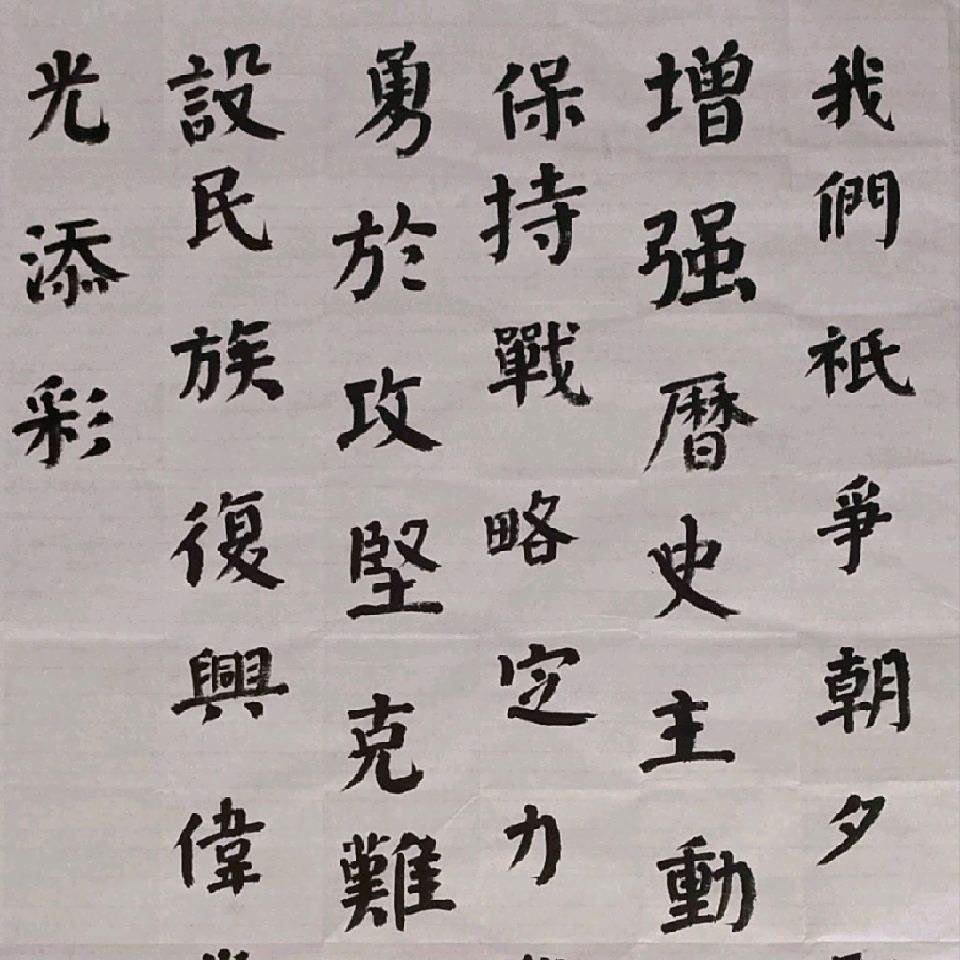 我們祇爭朝夕
增强曆史主動
保持戰略定力
勇於攻堅克難
設民族復興偉
光添彩